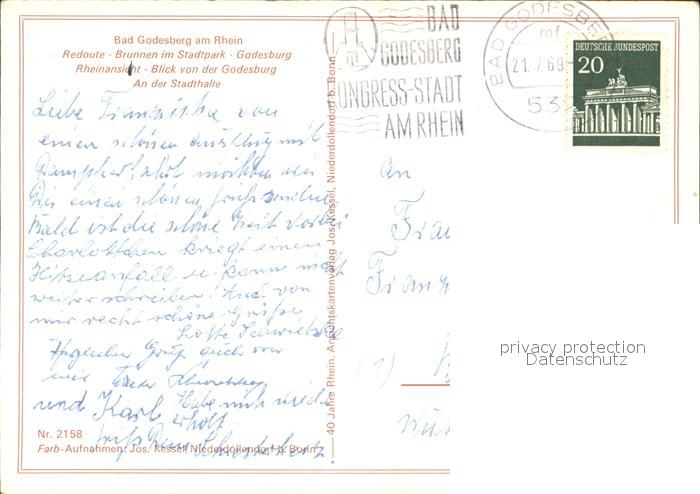 Bad Godesberg am Rhein
Redoute · Brunnen im Stadtpark · Godesburg
Rheinansicht · Blick von der Godesburg
An der Stadthalle
BAD
GODESBERG
KONGRESS-STADT
AM RHEIN
BAD GODESBERG
mf
21.7.69
532
DEUTSCHE BUNDESPOST
20
Liebe Franziska von
einen schönen Ausflug mit
Dampferfahrt möchten wir
Dir einen schönen Gruß senden
Bald ist die schöne Zeit vorbei
Charlottchen kriegt einen
Hitzeanfall u. kann nicht
weiter schreiben! Auch von
mir recht schöne Grüße
Lotte
Herzlichen Gruß auch von
mir
und Karl Habe mich wieder
erholt
Gruß
An
Frau
(1)
40 Jahre Rhein. Ansichtskartenverlag Jos. Kessel, Niederdollendorf b. Bonn
Nr. 2158
Farb-Aufnahmen: Jos. Kessel, Niederdollendorf b. Bonn
privacy protection
Datenschutz